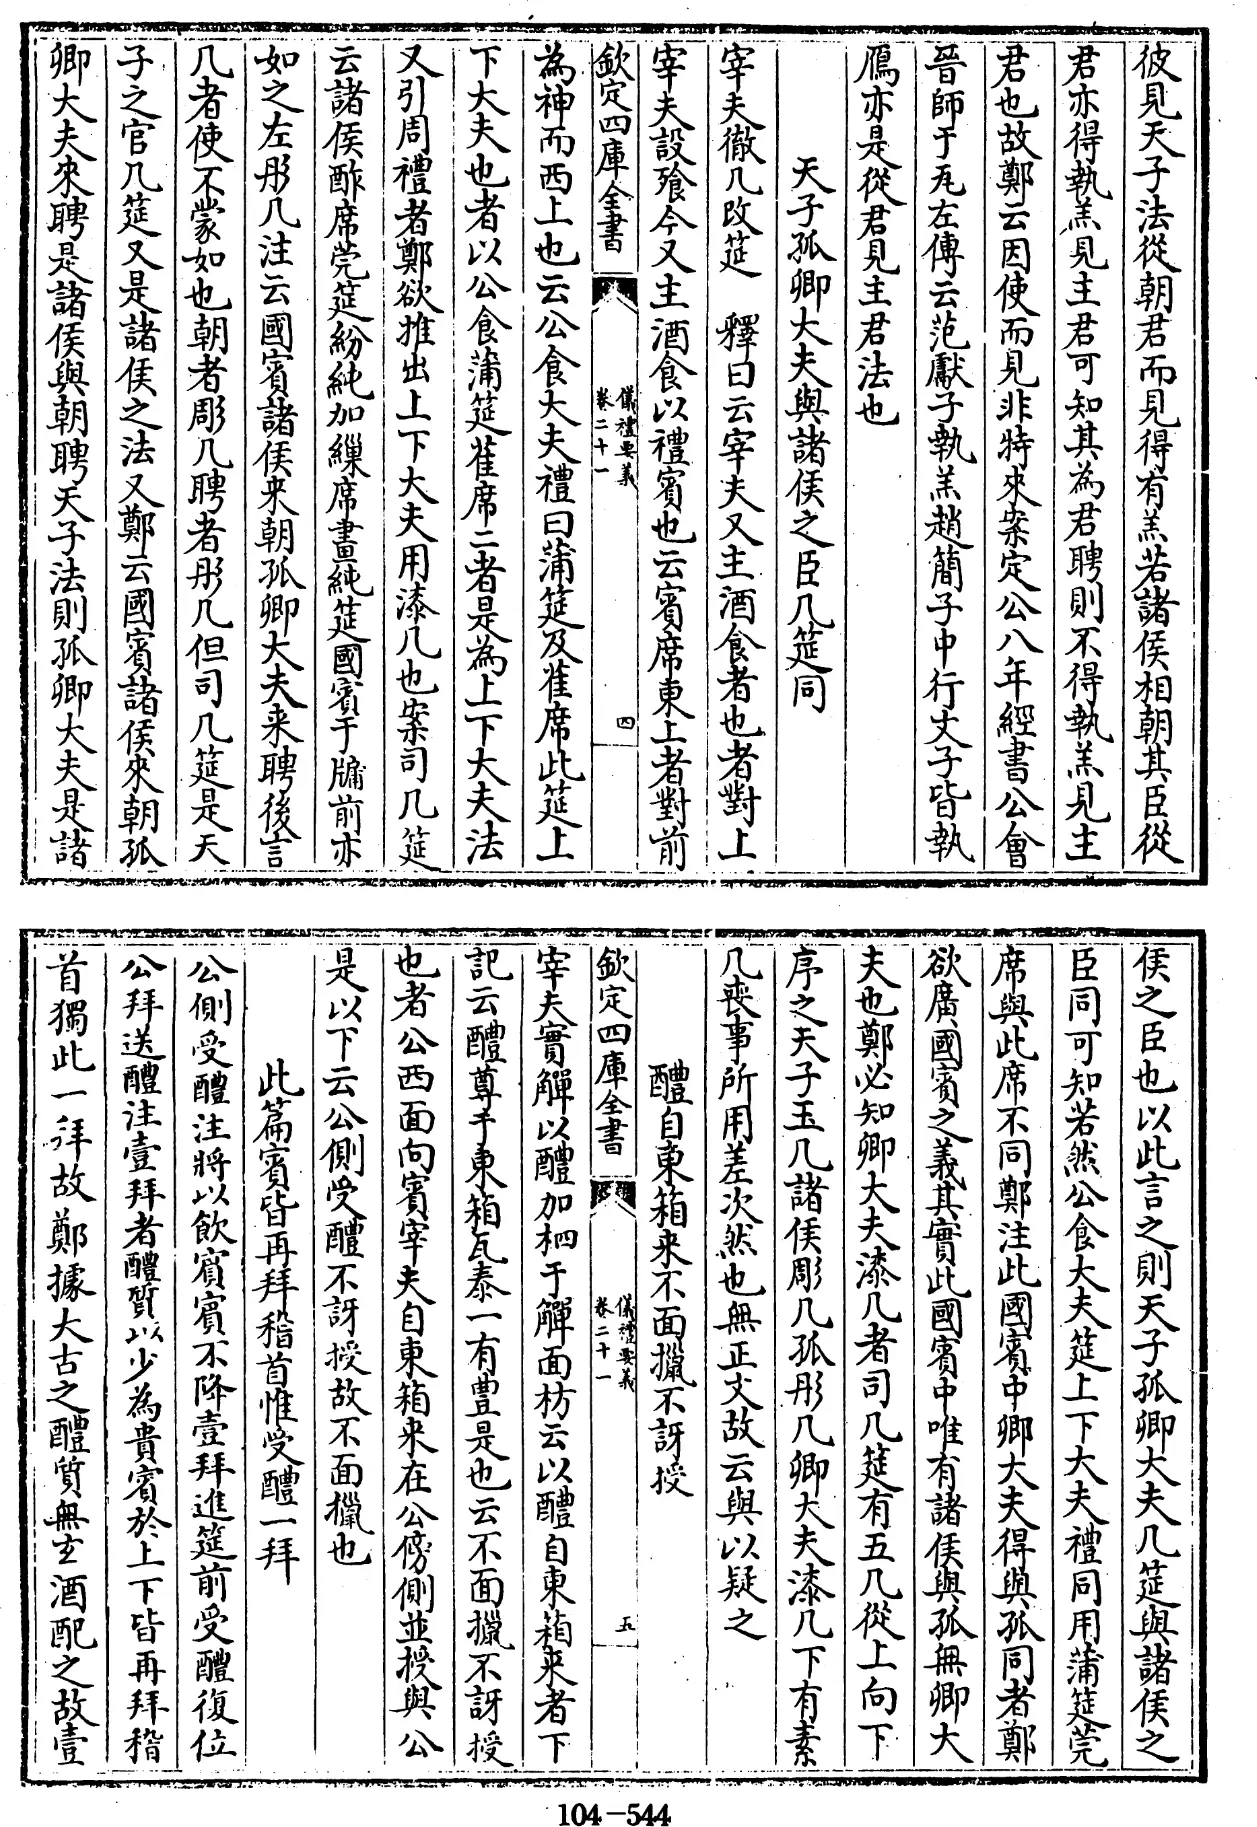 彼見天子法從朝君而見得有羔若諸侯相朝其臣從
君亦得執羔見主君可知其為君聘則不得執羔見主
君也故鄭云因使而見非特來案定公八年經書公會
晉師于瓦左傳云范獻子執羔趙簡子中行文子皆執
鴈亦是從君見主君法也
天子孤卿大夫與諸侯之臣几筵同
宰夫徹几改筵　釋曰云宰夫又主酒食者也者對上
宰夫設飱今又主酒食以禮賓也云賓席東上者對前
欽定四庫全書
儀禮要義
卷二十一
四
為神而西上也云公食大夫禮曰蒲筵及萑席此筵上
下大夫也者以公食蒲筵萑席二者是為上下大夫法
又引周禮者鄭欲推出上下大夫用漆几也案司几筵
云諸侯酢席莞筵紛純加繅席畫純筵國賓于牖前亦
如之左彤几注云國賓諸侯來朝孤卿大夫来聘後言
几者使不蒙如也朝者彫几聘者彤几但司几筵是天
子之官几筵又是諸侯之法又鄭云國賓諸侯來朝孤
卿大夫來聘是諸侯與朝聘天子法則孤卿大夫是諸
侯之臣也以此言之則天子孤卿大夫几筵與諸侯之
臣同可知若然公食大夫筵上下大夫禮同用蒲筵莞
席與此席不同鄭注此國賓中卿大夫得與孤同者鄭
欲廣國賓之義其實此國賓中唯有諸侯與孤無卿大
夫也鄭必知卿大夫漆几者司几筵有五几從上向下
序之天子玉几諸侯彫几孤彤几卿大夫漆几下有素
几喪事所用差次然也無正文故云與以疑之
醴自東箱来不面擸不訝授
欽定四庫全書
儀禮要義
卷二十一
五
宰夫實觶以醴加柶于觶面枋云以醴自東箱来者下
記云醴尊于東箱瓦泰一有豊是也云不面擸不訝授
也者公西面向賓宰夫自東箱來在公傍側並授與公
是以下云公側受醴不訝授故不面擸也
此篇賓皆再拜稽首惟受醴一拜
公側受醴注將以飲賓賓不降壹拜進筵前受醴復位
公拜送醴注壹拜者醴質以少為貴賓於上下皆再拜稽
首獨此一拜故鄭據大古之醴質無玄酒配之故壹
104-544